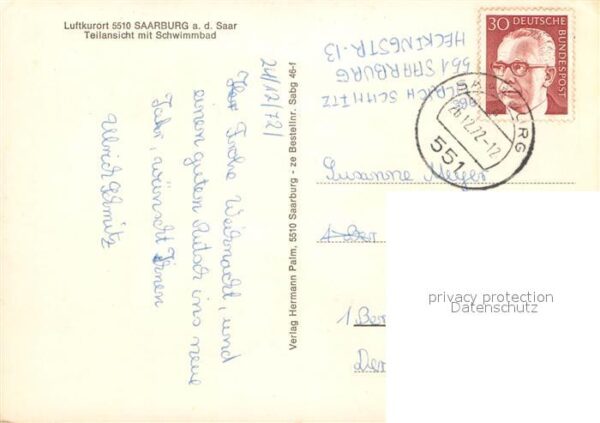 Luftkurort 5510 SAARBURG a. d. Saar
Teilansicht mit Schwimmbad
24/12/72/
Frohe Weihnacht, und
einen guten Rutsch ins neue
Jahr, wünscht Ihnen
Ullrich Schmitz
Verlag Hermann Palm, 5510 Saarburg - ze Bestellnr. Sabg 46-f
ULRICH SCHMITZ
551 SAARBURG
HECKINGSTR. 13
30 DEUTSCHE
BUNDESPOST
SAARBURG
26.12.72-12
551
Susanne Meyer
1 Ber
Der
privacy protection
Datenschutz